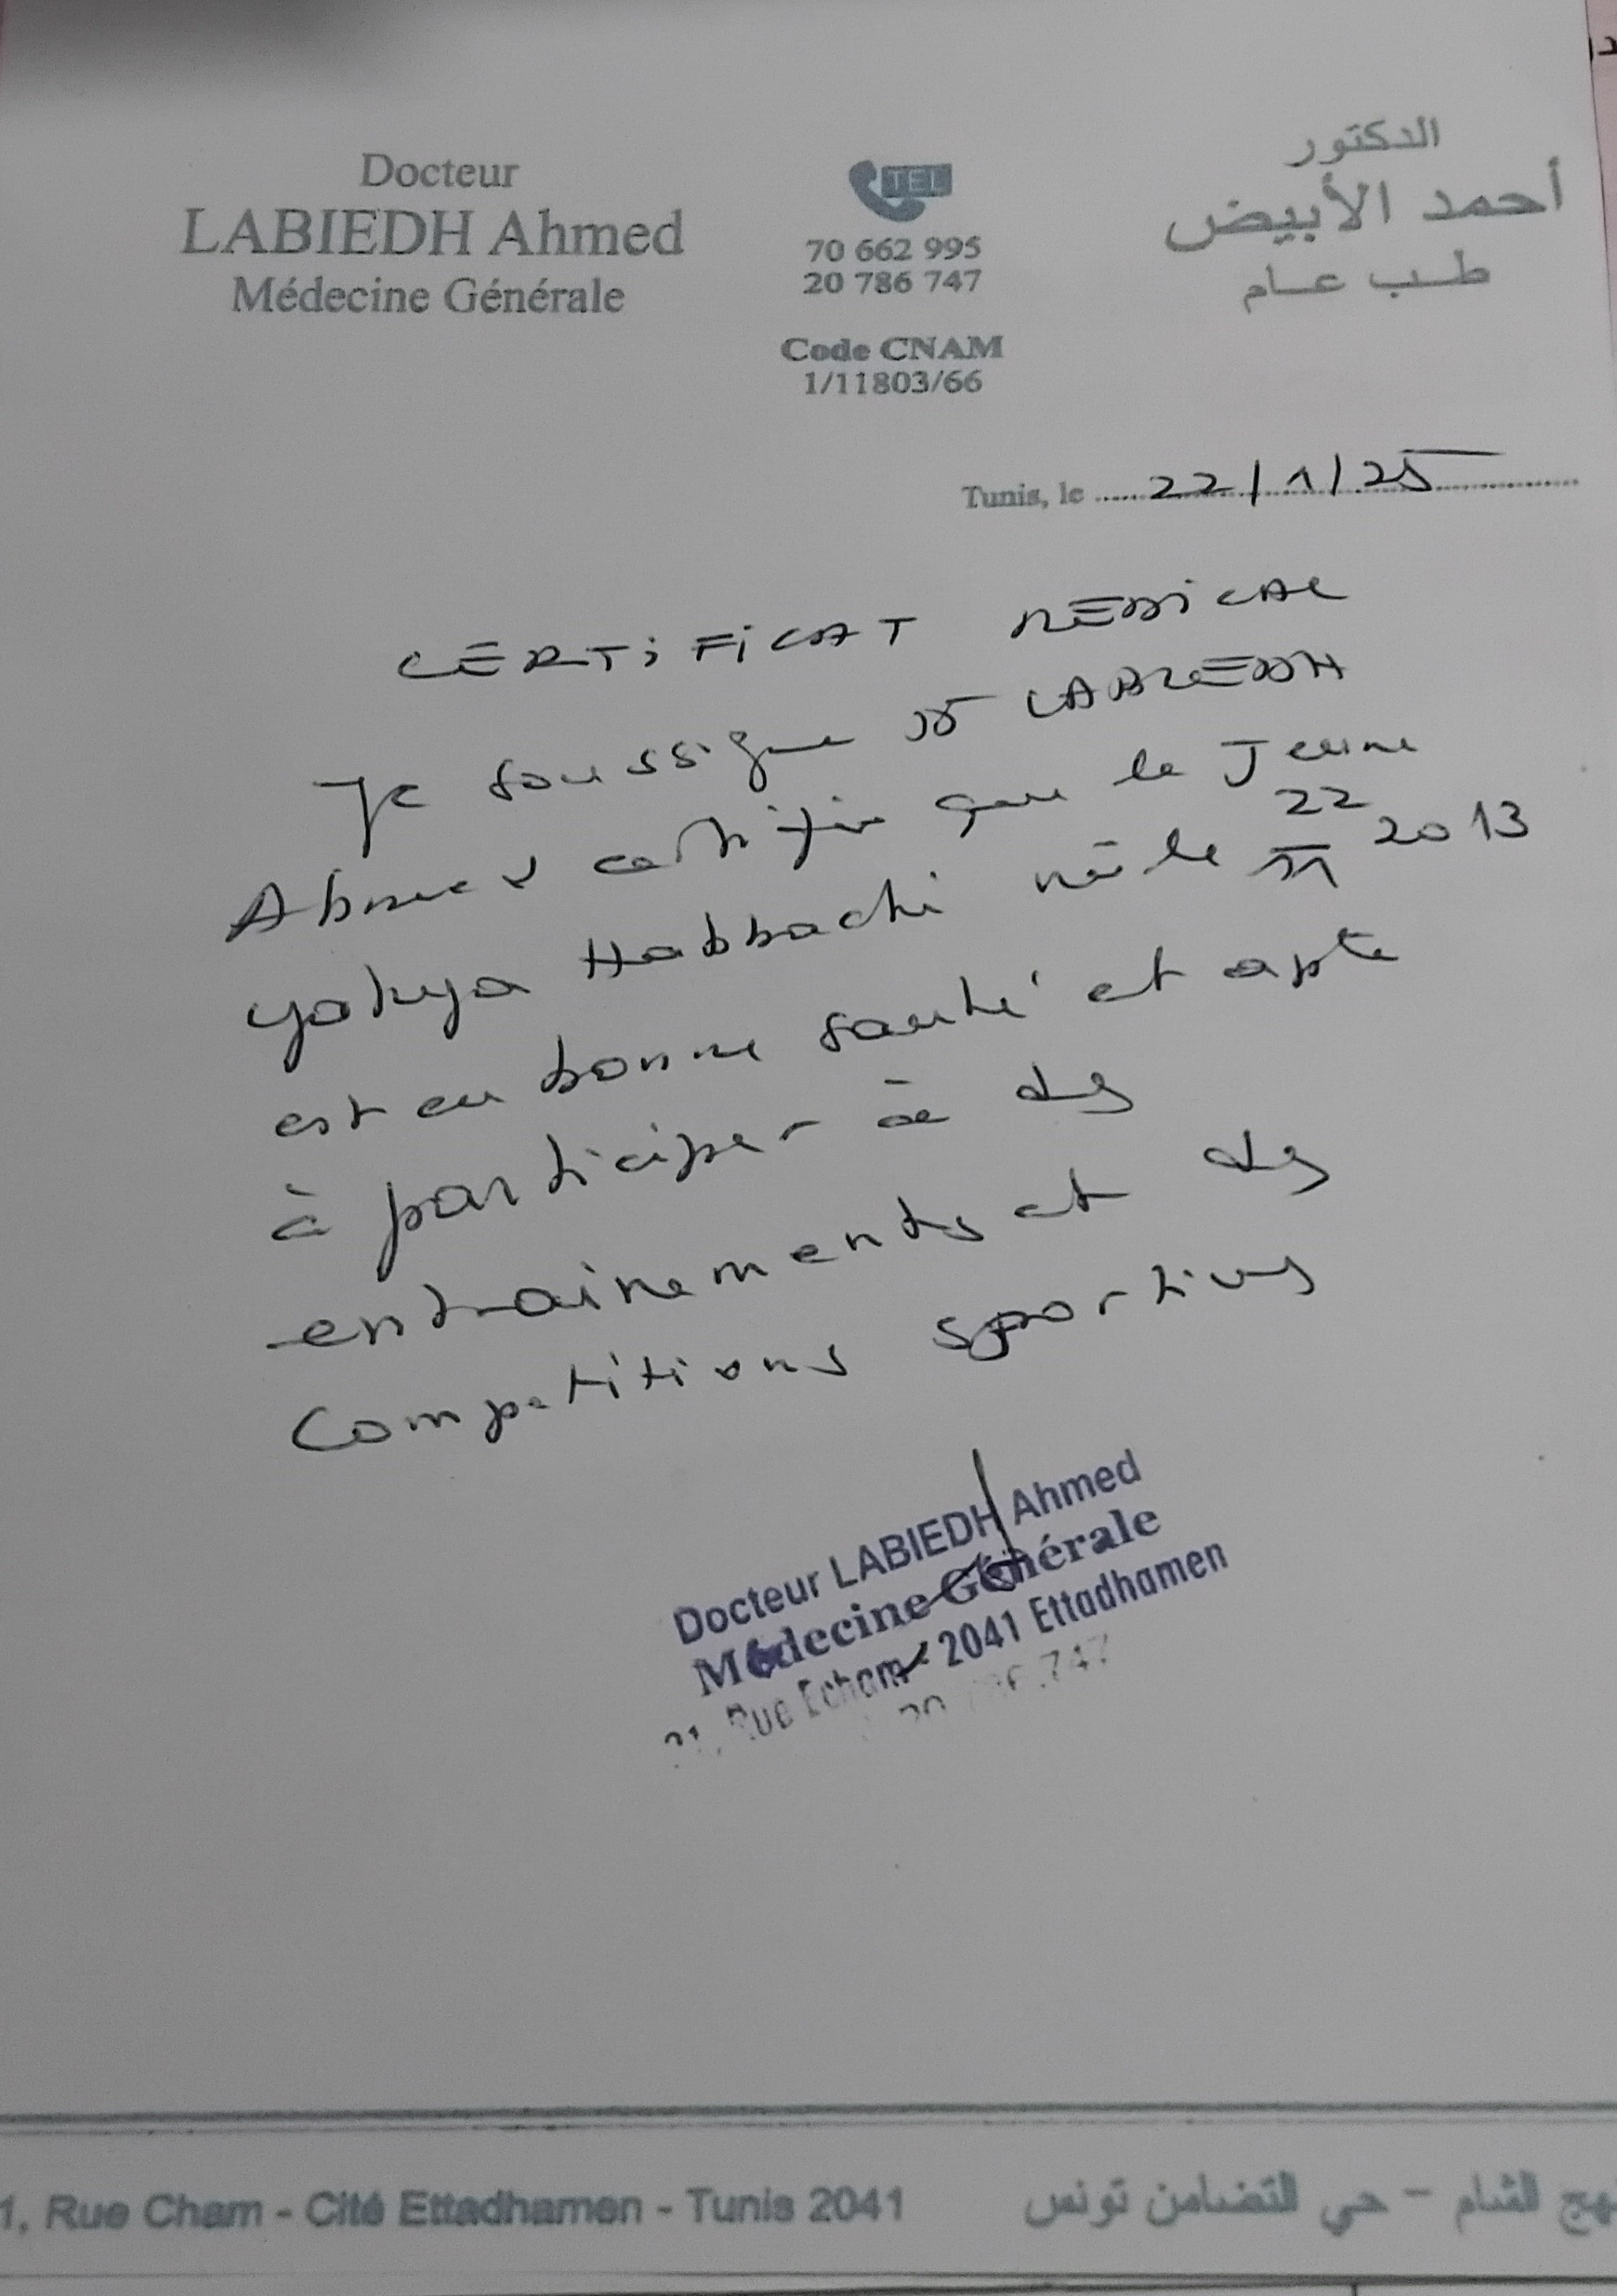 Docteur
LABIEDH Ahmed
Médecine Générale
TEL
70 662 995
20 786 747
Code CNAM
1/11803/66
الدكتور
أحمد الأبيض
طب عام
Tunis, le 22/1/25
CERTIFICAT MEDICAL
Je soussigné Dr LABIEDH
Ahmed certifie que le Jeune
Yahya Habbachi né le 22/11 2013
est en bonne santé et apte
à participer à des
entrainements et des
Competitions sportives
Docteur LABIEDH Ahmed
Médecine Générale
Rue Echam - 2041 Ettadhamen
1, Rue Cham - Cité Ettadhamen - Tunis 2041
نهج الشام - حي التضامن تونس